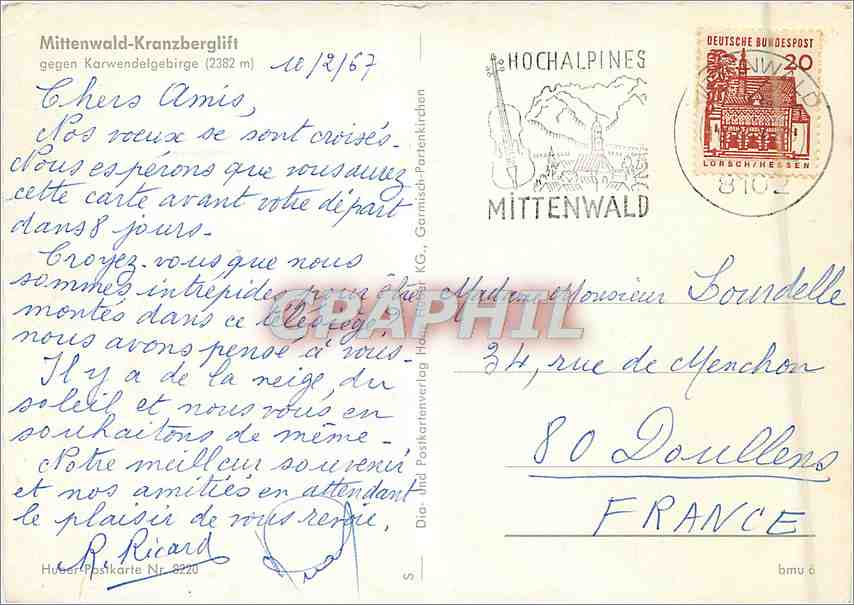 Mittenwald-Kranzberglift
gegen Karwendelgebirge (2382 m)
10/2/67
Chers Amis,
Nos vœux se sont croisés-
Nous espérons que vous aurez
cette carte avant votre départ
dans 8 jours-
Croyez-vous que nous
sommes intrépides pour être
montés dans ce télésiège?
nous avons pensé à vous
Il y a de la neige, du
soleil et nous vous en
souhaitons de même-
Notre meilleur souvenir
et nos amitiés en attendant
le plaisir de vous revoir.
R. Ricard
Huber-Postkarte Nr. 8220
Dia- und Postkartenverlag Huber KG., Garmisch-Partenkirchen
S 1
CPAPHIL
HOCHALPINES
MITTENWALD
DEUTSCHE BUNDESPOST
20
LORSCH/HESSEN
8102
Madame Monsieur Lourdelle
34, rue de Menchon
80 Doullens
FRANCE
bmu 6